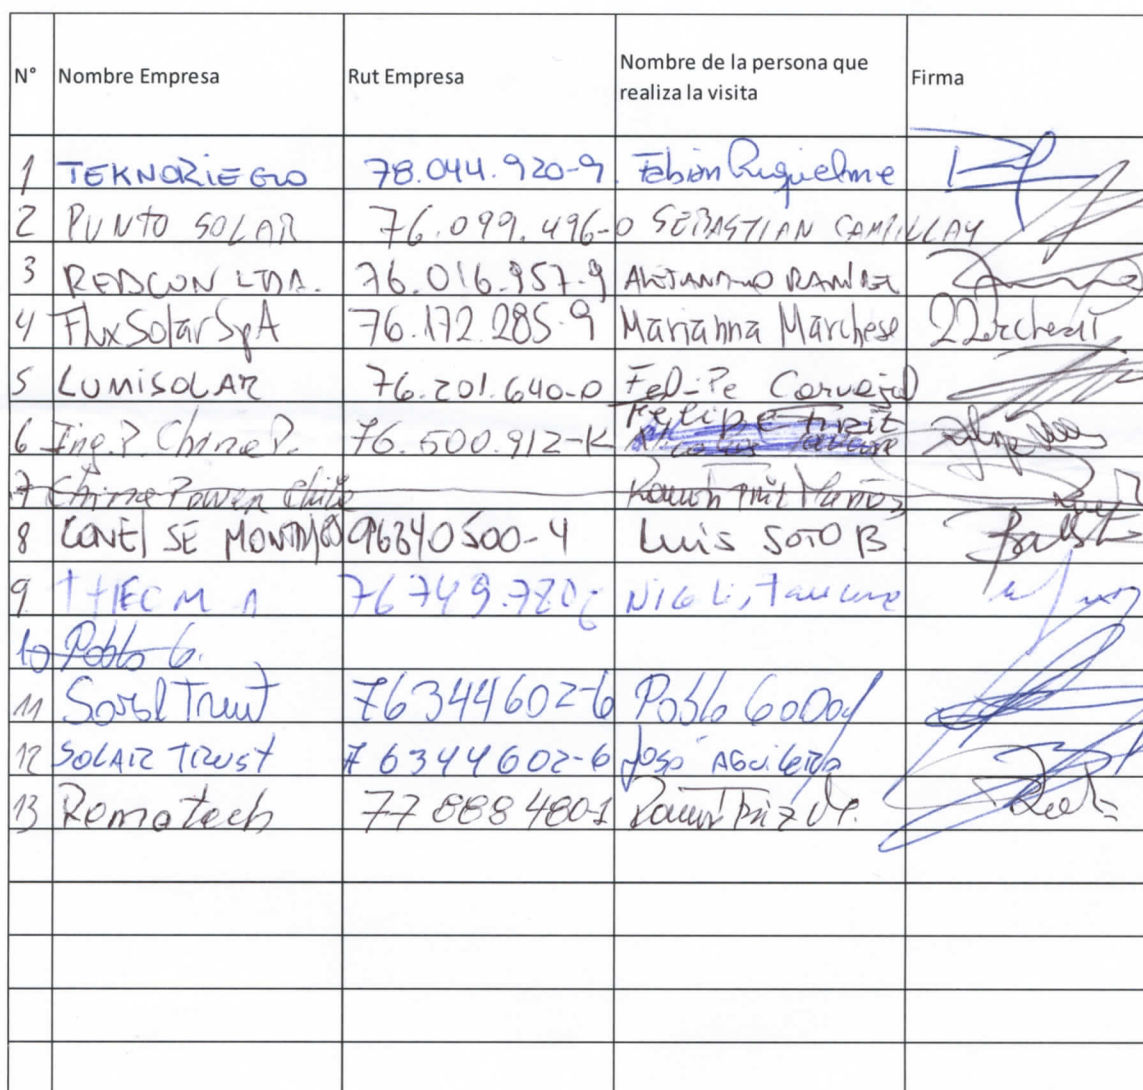 N° Nombre Empresa Rut Empresa Nombre de la persona que realiza la visita Firma
1 TEKNORIEGO 78.044.920-9 Fabián Riquelme
2 PUNTO SOLAR 76.099.496-0 SEBASTIAN CAMPILLAY
3 REDSCON LTDA. 76.016.957-9 ALEJANDRO RAMIREZ
4 FluxSolar SpA 76.172.285-9 Marianna Marchese
5 LUMISOLAR 76.201.640-0 Felipe Carvajal
6 Ing. P. China P. 76.500.912-K Felipe
7 China Power Chile
8 CONEJ SE MONTAJES 96840500-4 Luis SOTO B
9 76749.720
10 Pablo G.
11 Trust 76344602-6 Pablo GODOY
12 SOLAR TRUST 76344602-6 José AGUILERA
13 Rematech 77888480-1